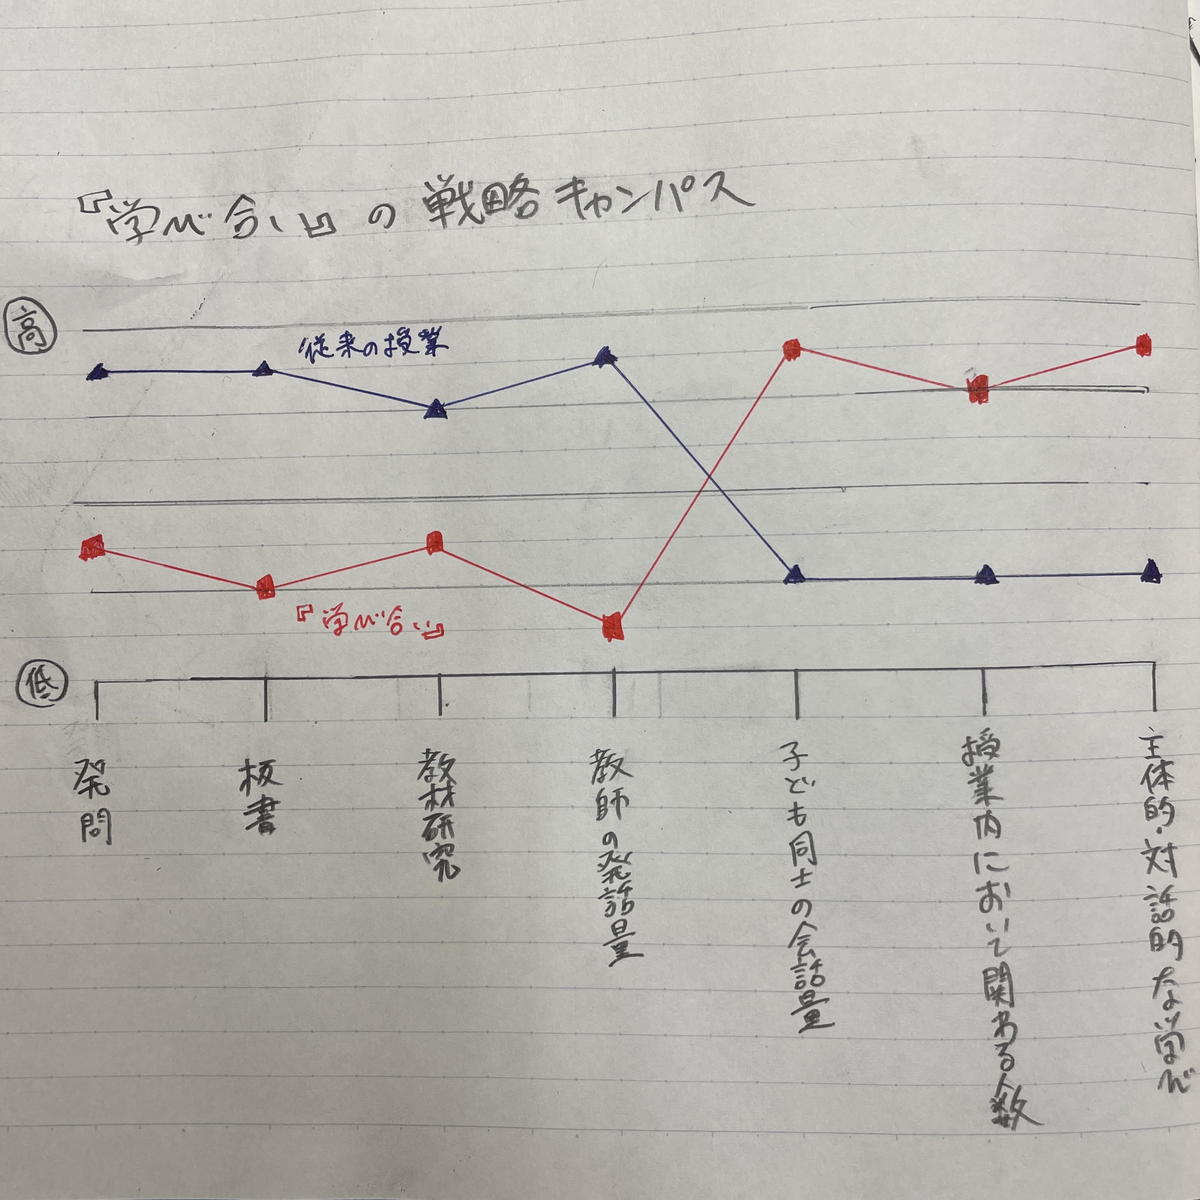 『学び合い』の戦略キャンパス
高
従来の授業
『学び合い』
低
発問
板書
教材研究
教師の発話量
子ども同士の会話量
授業内において関わる人数
主体的・対話的な学び